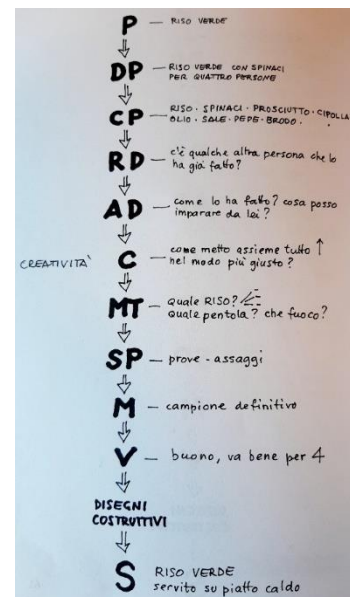 P — RISO VERDE
DP — RISO VERDE CON SPINACI
PER QUATTRO PERSONE
CP — RISO · SPINACI · PROSCIUTTO · CIPOLLA
OLIO · SALE · PEPE · BRODO ·
RD — c'è qualche altra persona che lo
ha già fatto?
AD — come lo ha fatto? cosa posso
imparare da lei?
CREATIVITÀ C — come metto assieme tutto
nel modo più giusto?
MT — Quale RISO?
quale pentola? che fuoco?
SP — prove - assaggi
M — campione definitivo
V — buono, va bene per 4
DISEGNI
COSTRUTTIVI
S RISO VERDE
servito su piatto caldo